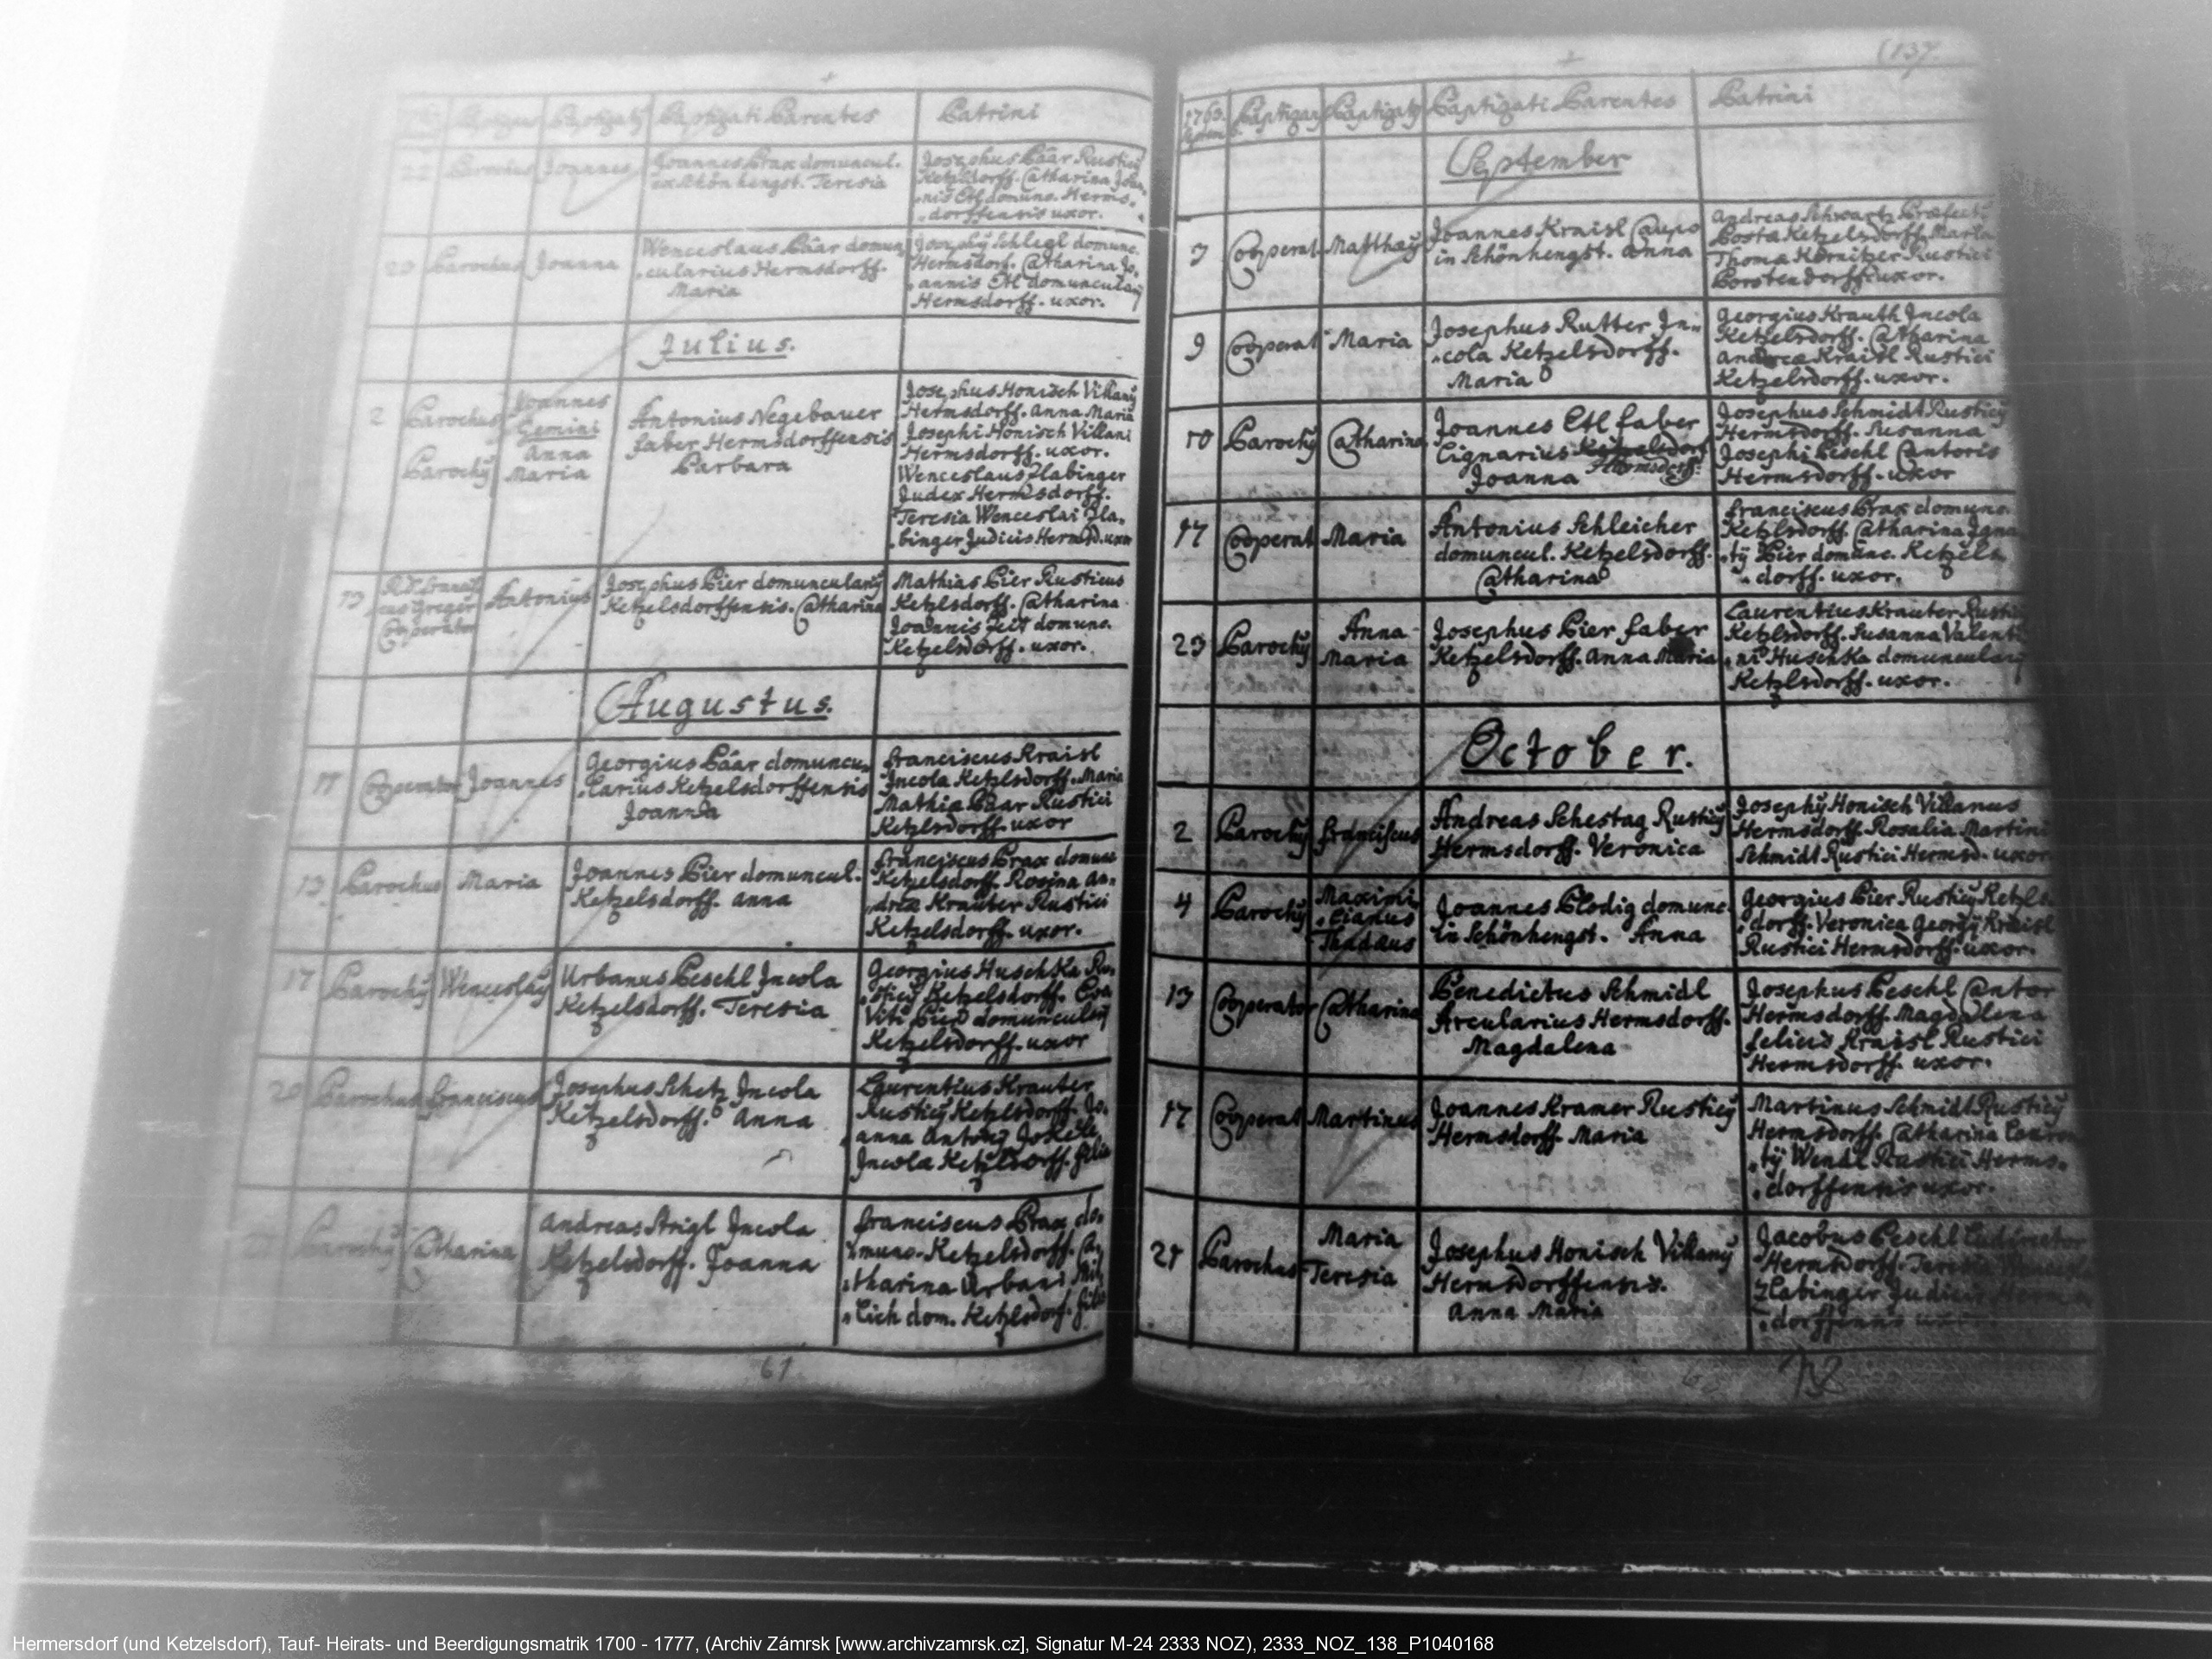 Baptizati Parentes
Patrini
22
Parochus
Joannes
Joannes Prax domuncul.
ex Schönhengst. Teresia
Josephus Päar Rusticÿ
Ketzlsdorff. Catharina Joan„
„nis Etl domunc. Herms„
„dorffensis uxor.
Parochus
Joanna
Wenceslaus Päar domun„
„cularius Hermsdorff.
Maria
Josephÿ Schlegl domunc.
Hermsdorf. Catharina Jo„
„annis Etl domuncularÿ
Hermsdorff. uxor.
Julius.
2
Parochus
Parochÿ
Joannes
Gemini
Anna
Maria
Antonius Negebauer
faber Hermsdorffensis
Barbara
Josephus Honisch Villanÿ
Hermsdorff. Anna Maria
Josephi Honisch Villani
Hermsdorff. uxor.
Wenceslaus Habinger
Judex Hermsdorff.
Teresia Wenceslai Ha„
„binger Judicis Hermsd. uxor
13
Cooperator
Antonius
Josephus Pier domuncularÿ
Ketzelsdorffensis. Catharina
Mathias Pier Rusticus
Ketzlsdorff. Catharina
Joannis Zeit domunc.
Ketzelsdorff. uxor.
Augustus.
11
Cooperator
Joannes
Georgius Päar domuncu„
„larius Ketzelsdorffensis
Joanna
Franciscus Kraisl
Incola Ketzlsdorff. Maria
Mathiæ Päar Rustici
Ketzlsdorff. uxor
13
Parochus
Maria
Joannes Pier domuncul.
Ketzelsdorff. Anna
Franciscus Prax domunc
Ketzelsdorff. Rosina An„
„dreæ Krauter Rustici
Ketzelsdorff. uxor.
17
Parochÿ
Wenceslaÿ
Urbanus Peschl Incola
Ketzelsdorff. Teresia
Georgius Huschka Ru„
„sticÿ Ketzelsdorff. Eva
Viti Pier domuncularÿ
Ketzelsdorff. uxor
20
Parochus
Franciscus
Josephus Schetz Incola
Ketzelsdorff. Anna
Laurentius Krauter
Rusticÿ Ketzlsdorff. Jo„
„anna Antonÿ
Incolæ Ketzlsdorff. filia
Parochÿ
Catharina
Andreas Strigl Incola
Ketzelsdorff. Joanna
Franciscus Prax do„
„munc. Ketzelsdorff. Ca„
„tharina Urbani Mil„
„lich dom. Ketzlsdorf. filia
61
(137.
1763.
Baptizans
Baptizatÿ
Baptizati Parentes
Patrini
September
3
Cooperat
Matthæÿ
Joannes Kraisl Caupo
in Schönhengst. Anna
Andreas Schwartz Præfectÿ
Postæ Ketzelsdorff. Maria
Thomæ Körnitzer Rustici
Porstendorff. uxor.
9
Cooperat
Maria
Josephus Rutter In„
„cola Ketzelsdorff.
Maria
Georgius Krauth Incola
Ketzelsdorff. Catharina
Andreæ Kraisl Rustici
Ketzelsdorff. uxor.
10
Parochÿ
Catharina
Joannes Etl faber
Lignarius Ketzelsdorf
Hermsdorff.
Joanna
Josephus Schmidt Rusticÿ
Hermsdorff. Susanna
Josephi Peschl Cantoris
Hermsdorff. uxor
17
Cooperat
Maria
Antonius Schleicher
domuncul. Ketzelsdorff.
Catharina
Franciscus Prax domunc.
Ketzlsdorff. Catharina Igna
„tÿ Pier domunc. Ketzels„
„dorff. uxor.
23
Parochÿ
Anna
Maria
Josephus Pier faber
Ketzelsdorff. Anna Maria
Laurentius Krauter Rustic
Ketzlsdorff. Susanna Valenti
„ni Huschka domuncularÿ
Ketzlsdorff. uxor.
October.
2
Parochÿ
Franciscus
Andreas Schestag Rusticÿ
Hermsdorff. Veronica
Josephÿ Honisch Villanus
Hermsdorff. Rosalia Martini
Schmidt Rustici Hermsd. uxor
4
Parochÿ
Maximi„
„lianus
Thadäus
Joannes Plodig domunc.
in Schönhengst. Anna
Georgius Pier Rusticÿ Ketzls
„dorff. Veronica Georgÿ Kraisl
Rustici Hermsdorff. uxor.
13
Cooperator
Catharina
Benedictus Schmidl
Arcularius Hermsdorff.
Magdalena
Josephus Peschl Cantor
Hermsdorff. Magdalena
Felicis Kraisl Rustici
Hermsdorff. uxor.
17
Cooperat
Martinus
Joannes Kramer Rusticÿ
Hermsdorff. Maria
Martinus Schmidt Rusticÿ
Hermsdorff. Catharina Lauren
„tÿ Wendl Rustici Herms„
„dorffensis uxor.
21
Parochus
Maria
Teresia
Josephus Honisch Villanÿ
Hermsdorffensis.
Anna Maria
Jacobus Peschl
Hermsdorff. Teresia
Habinger Judicis Herms
„dorffensis uxor.
Hermersdorf (und Ketzelsdorf), Tauf- Heirats- und Beerdigungsmatrik 1700 - 1777, (Archiv Zámrsk [www.archivzamrsk.cz], Signatur M-24 2333 NOZ), 2333_NOZ_138_P1040168